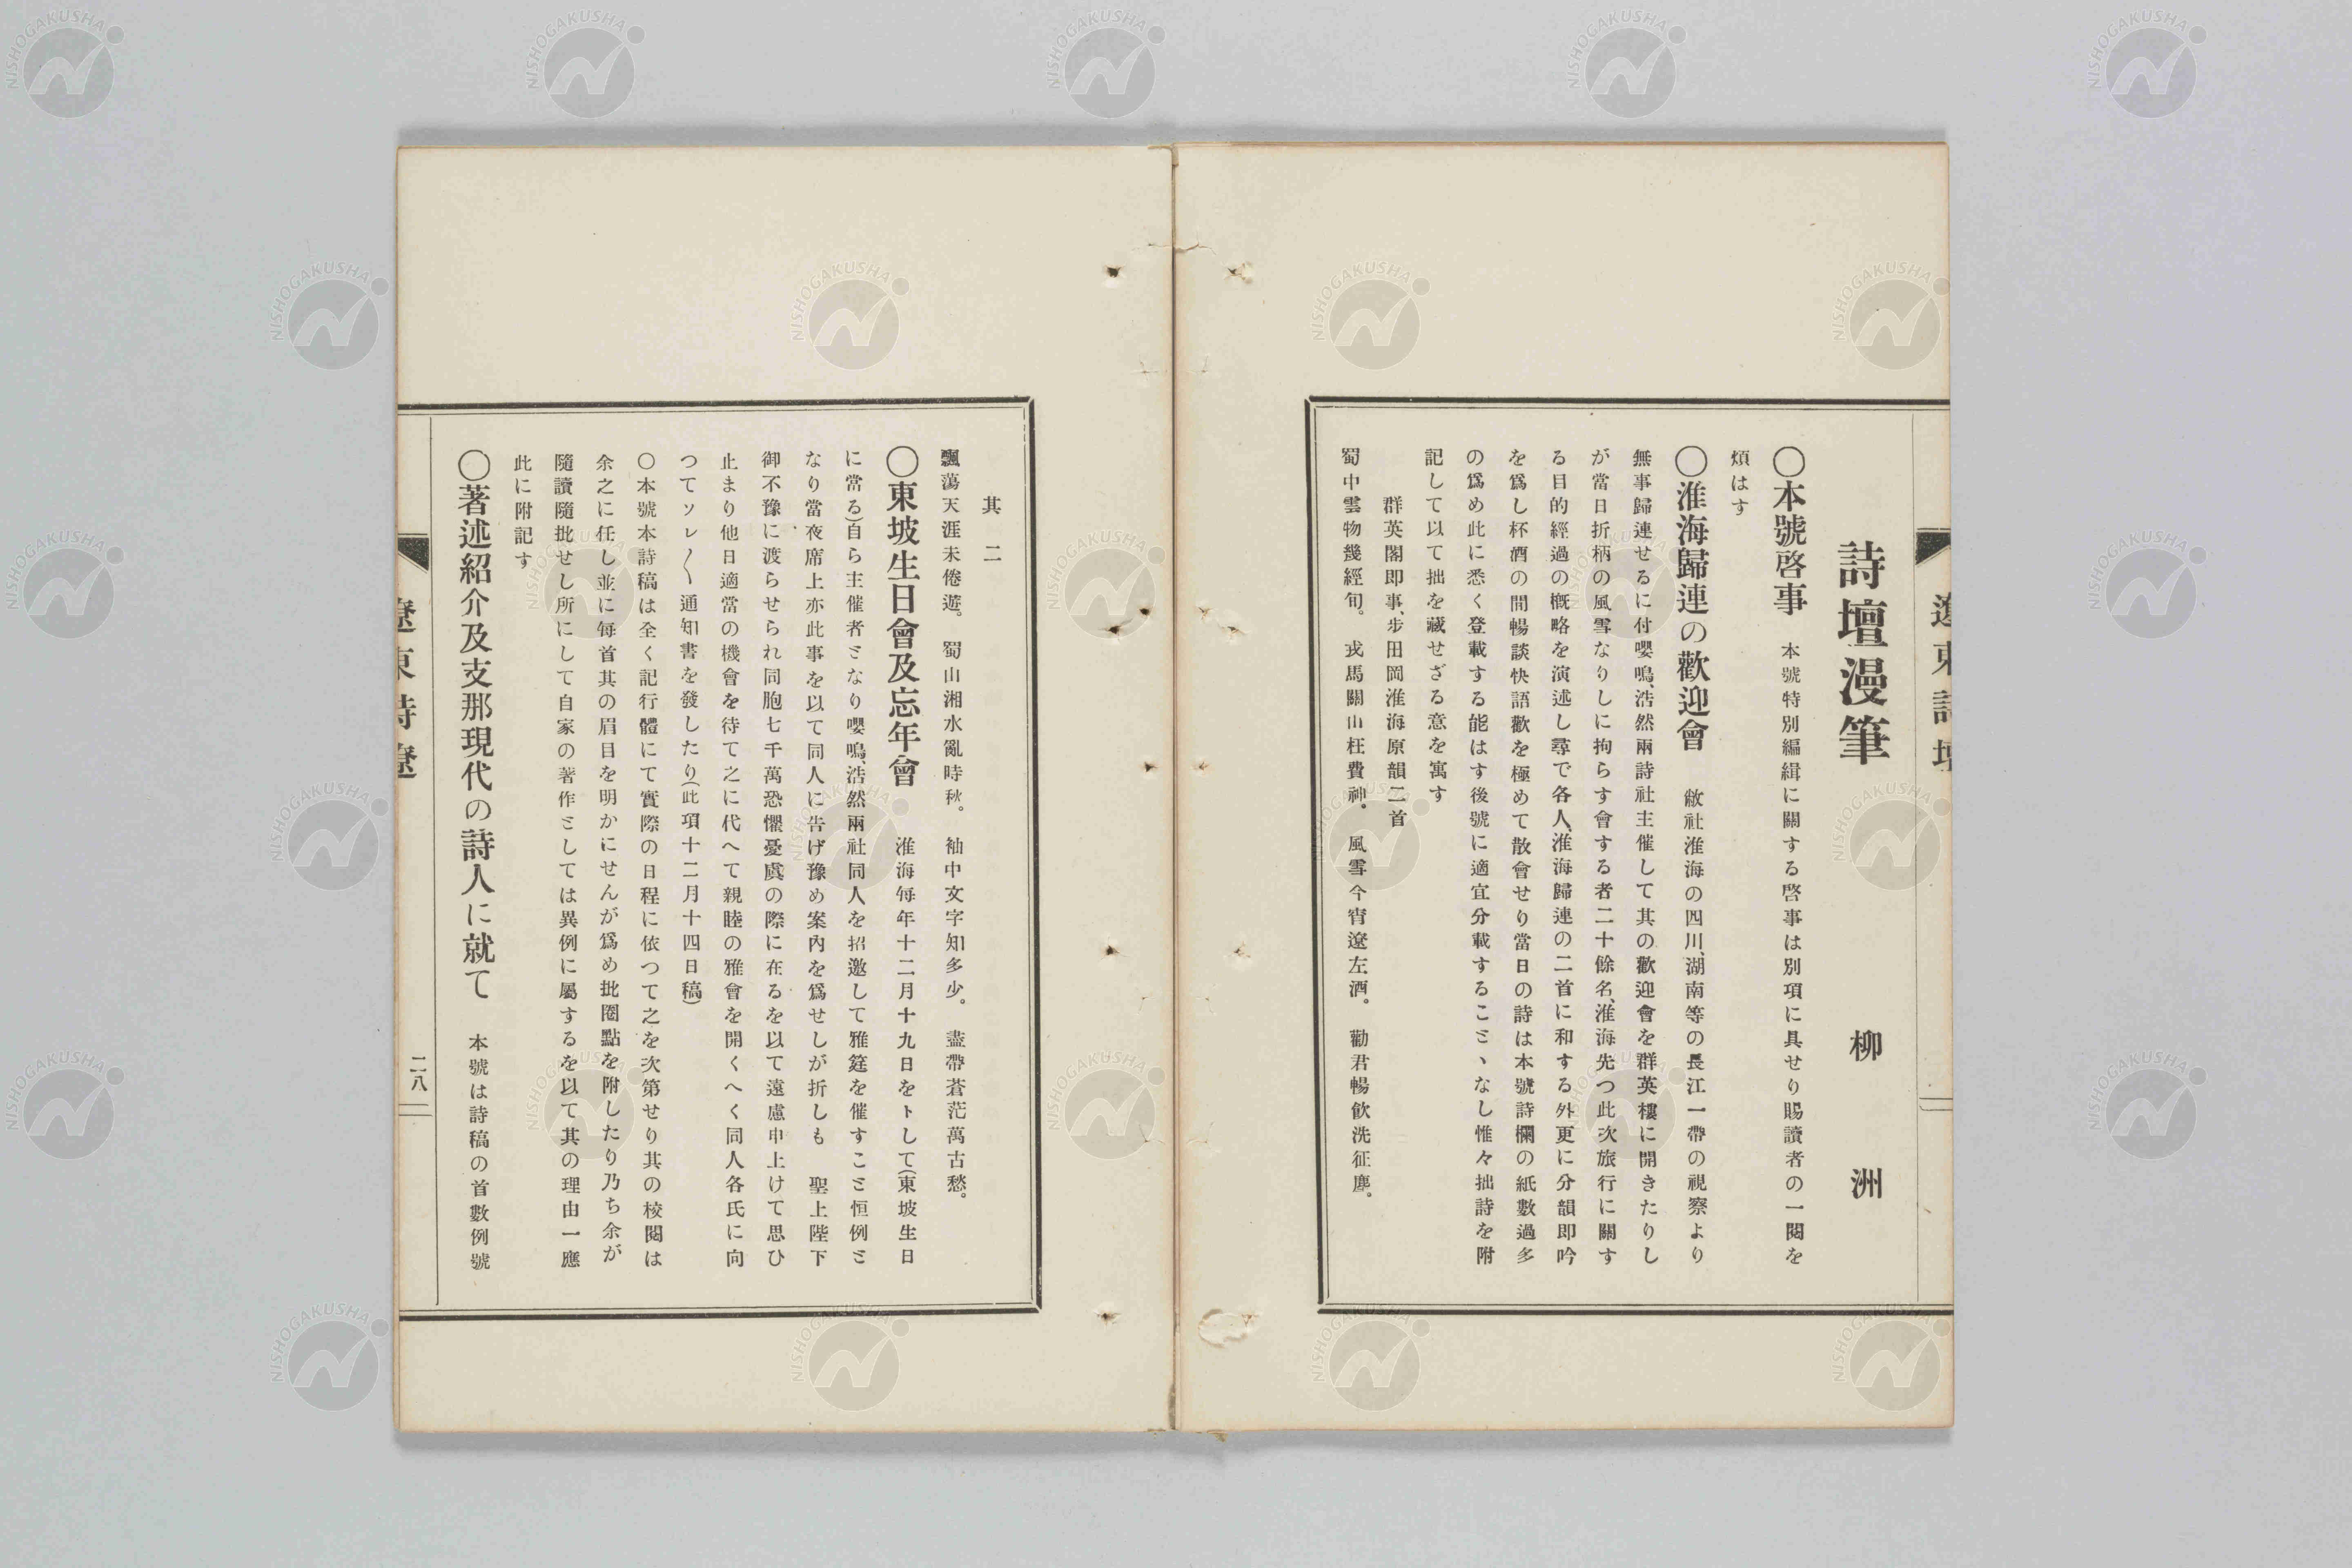 詩壇漫筆　柳洲
〇本號啓事　本號特別編緝に關する啓事は別項に具せり賜讀者の一閲を
煩はす
〇淮海歸連の歡迎會　敝社淮海の四川、湖南等の長江一帶の視察より
無事歸連せるに付嚶鳴、浩然兩詩社主催して其の歡迎會を群英樓に開きたりし
が當日折柄の風雪なりしに拘らす會する者二十餘名、淮海先つ此次旅行に關す
る目的經過の概略を演述し尋で各人、淮海歸連の二首に和する外更に分韻即吟
を爲し杯酒の間暢談快語歡を極めて散會せり當日の詩は本號詩欄の紙數過多
の爲め此に悉く登載する能はす後號に適宜分載することゝなし惟々拙詩を附
記して以て拙を藏せざる意を寓す
群英閣即事、步田岡淮海原韻二首
蜀中雲物幾經旬。戎馬關山枉費神。風雪今宵遼左酒。勸君暢飮洗征塵。
其二
飄蕩天涯未倦遊。蜀山湘水亂時秋。袖中文字知多少。盡帶蒼茫萬古愁。
〇東坡生日會及忘年會　淮海每年十二月十九日をトして(東坡生日
に當る)自ら主催者となり嚶鳴、浩然兩社同人を招邀して雅筵を催すこと恒例と
なり當夜席上亦此事を以て同人に告げ豫め案內を爲せしが折しも　聖上陛下
御不豫に渡らせられ同胞七千萬恐懼憂虞の際に在るを以て遠慮申上けて思ひ
止まり他日適當の機會を待て之に代へて親睦の雅會を開くへく同人各氏に向
つてソレ〳〵通知書を發したり(此項十二月十四日稿)
〇本號本詩稿は全く記行體にて實際の日程に依つて之を次第せり其の校閲は
余之に任し並に每首其の眉目を明かにせんが爲め批圈點を附したり乃ち余が
隨讀隨批せし所にして自家の著作としては異例に屬するを以て其の理由一應
此に附記す
〇著述紹介及支那現代の詩人に就て　本號は詩稿の首數例號
二八